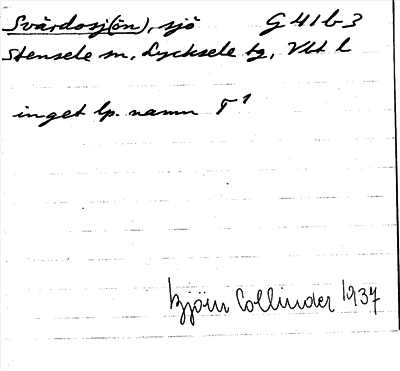 Svärdosj(ön), sjö G 41 b-3
Stensele sn, Lycksele tg, Vbt l
inget lp. namn T¹
Björn Collinder 1937